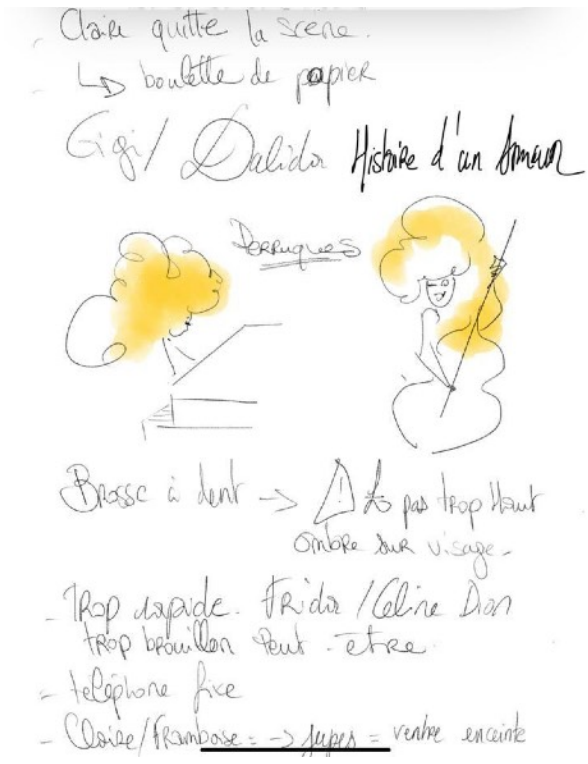 - Claire quitte la scene.
- ↳ boulette de papier
Gigi / Dalida Histoire d'un Amour
Perruques
Brosse à dent -> ⚠ pas trop Haut
ombre sur visage.
- Trop rapide. Frida / Celine Dion
trop brouillon Peut-être.
- telephone fixe
- Claire/Framboise = -> jupes = ventre enceinte